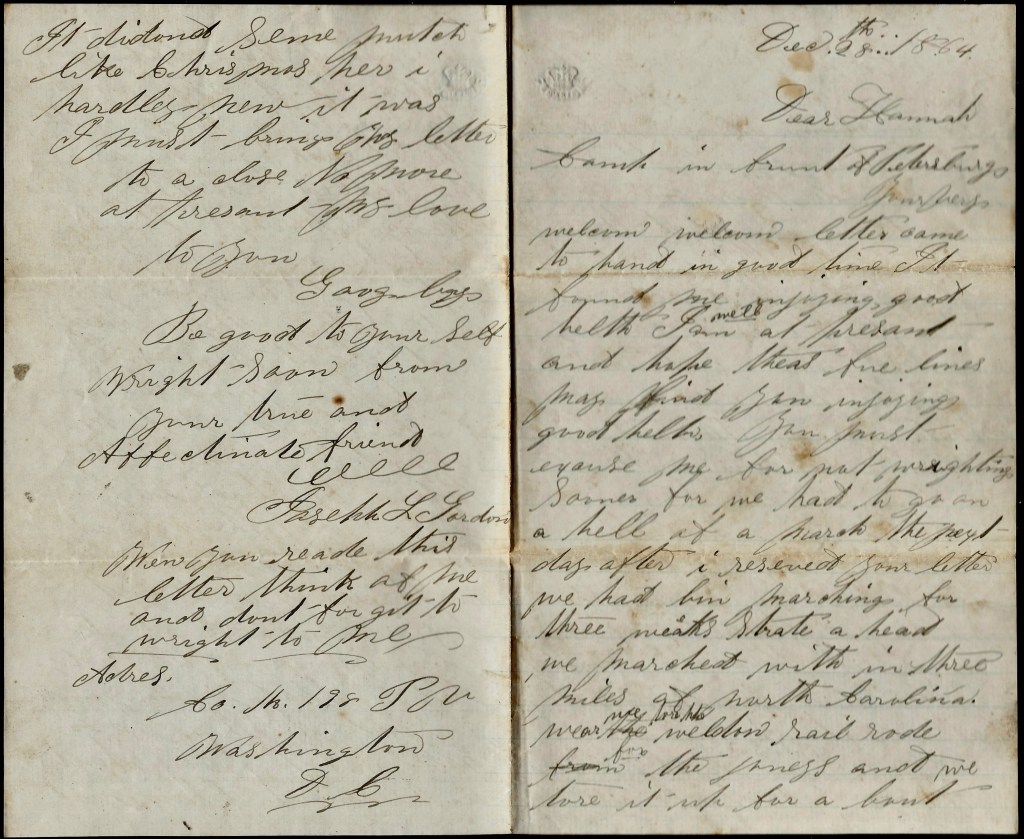 Dec. 28th. 1864.
Dear Hannah
Camp in frunt of Petersburg
Your very
welcom welcom letter came
to hand in good time It
found me injoying good
helth I am well at presant
and hope theas fue lines
may find you injoying
good helth You must
excuse me for not wrighting
Sooner for we had to go on
a hell of a march the next
day after i reseved your letter
we had bin marching for
three weaks strate a head
we marched with in three
miles of north Carolina.
wear we tore the weldon rail rode
for the and we
tore it up for a bout
It didond seme mutch
like Chrismos her i
hardley new it was
I must bring this letter
to a close No more
at presant love
to you
Goog by
Be good to your self
Wright soon from
your true and
Affectinate friend
Joseph L Gordon
When you reade this
letter think of me
and dont for git to
wright to me
Adres.
Co. 198 P V
Washington
D C